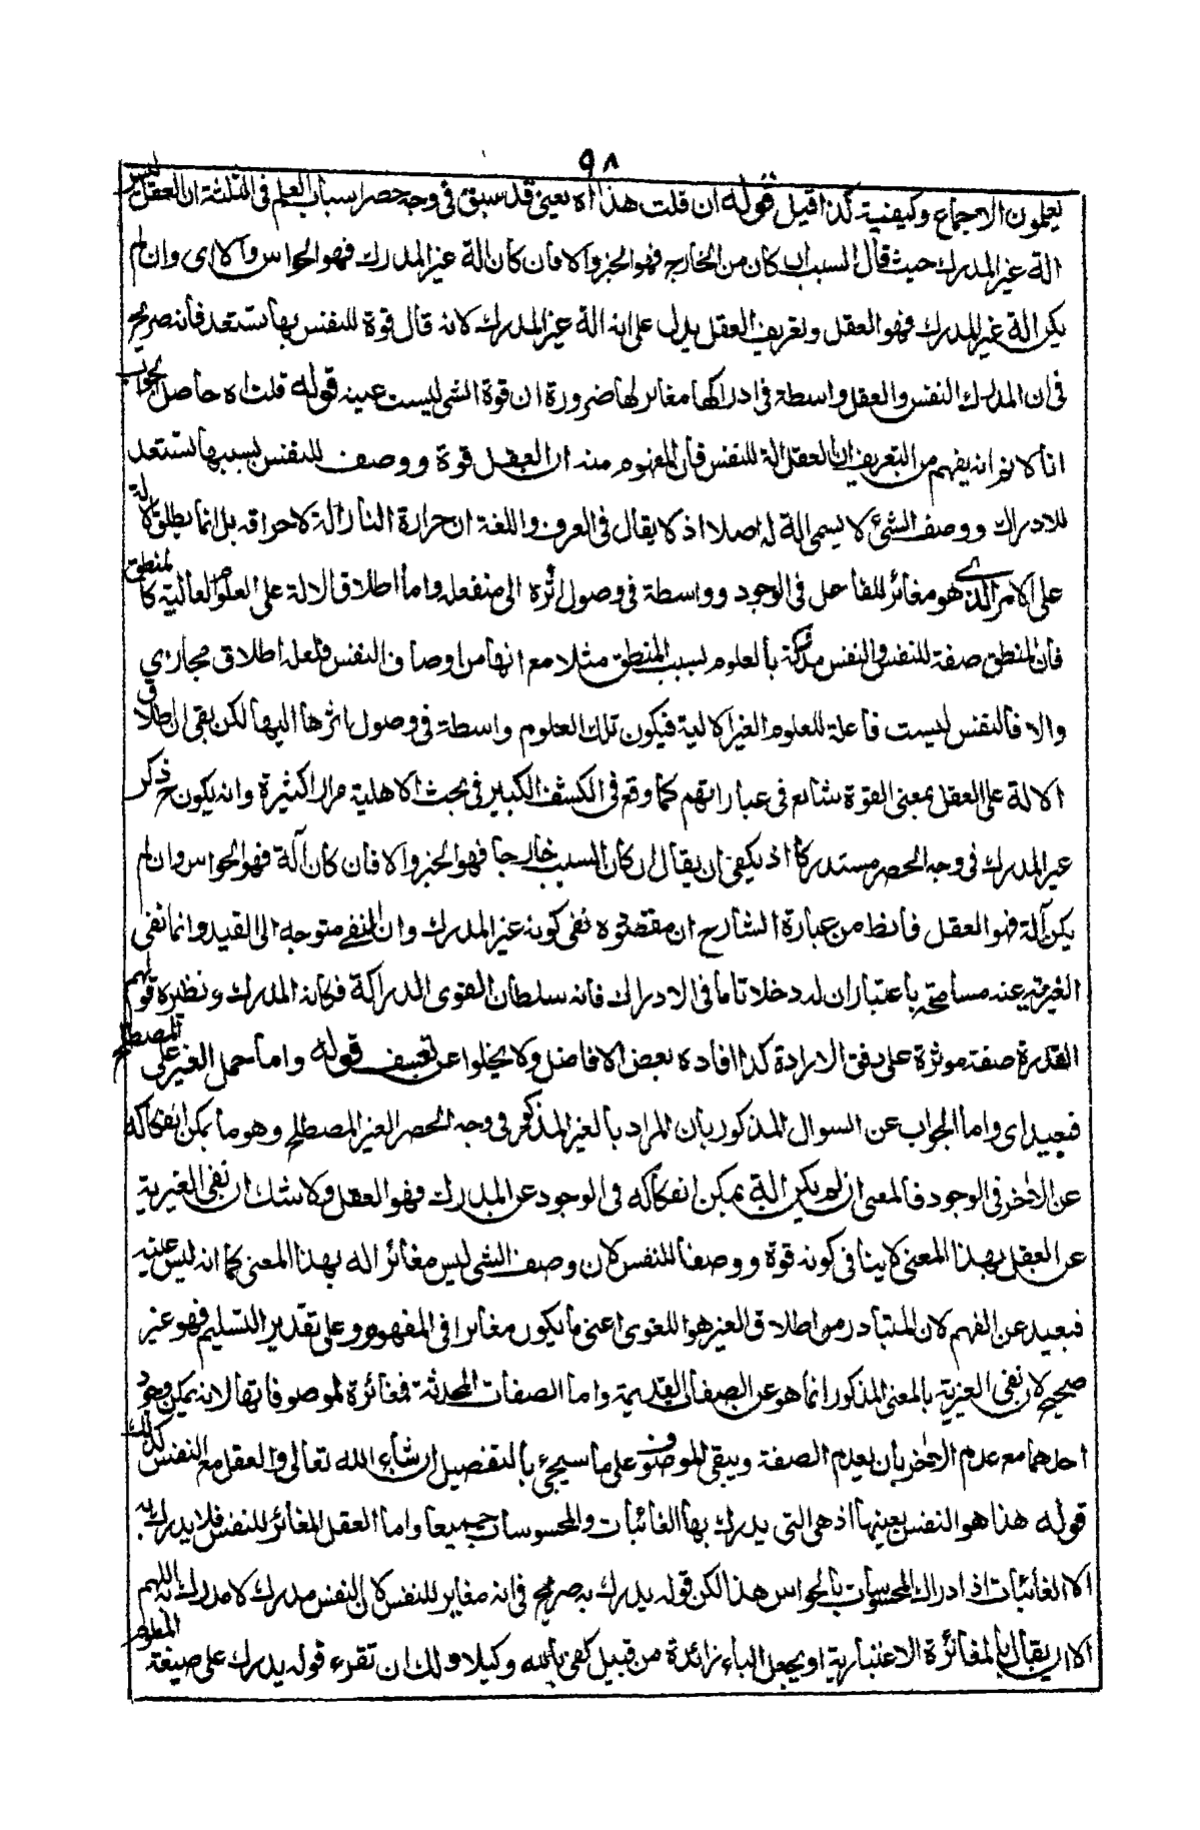 ٩٨
يعلمون الاجماع وكيفيته كذا قيل قوله ان قلت هذا اه يعنى قد سبق فى وجه حصر اسباب العلم فى الثلثة ان العقل ليس
الة غير المدرك حيث قال السبب ان كان من الخارج فهو الخبر والا فان كان الة غير المدرك فهو الحواس والا اى وان لم
يكن الة غير المدرك فهو العقل وتعريف العقل يدل على انه الة غير المدرك لانه قال قوة للنفس بها تستعد فانه صريح
فى ان المدرك النفس والعقل واسطة فى ادراكها مغائر لها ضرورة ان قوة الشى ليست عينه قوله قلت اه حاصل الجواب
انا لا نم انه يفهم من التعريف ان العقل الة للنفس فان المفهوم منه ان العقل قوة ووصف للنفس بسببها تستعد
للادراك ووصف الشئ لا يسمى الة له اصلا اذ لا يقال فى العرف واللغة ان حرارة النار الة لاحراقه بل انما يطلق الالة
على الامر الذى هو مغائر للفاعل فى الوجود وواسطة فى وصول اثره الى منفعله واما اطلاق الالة على العلوم العالية كالمنطق
فان المنطق صفة للنفس والنفس مدركة بالعلوم بسبب المنطق مثلا مع انها من اوصاف النفس فلعله اطلاق مجازى
والا فالنفس ليست فاعلة للعلوم الغير الالية فيكون تلك العلوم واسطة فى وصول اثرها اليها لكن بقى ان اطلاق
الالة على العقل بمعنى القوة شائع فى عباراتهم كما وقع فى الكشف الكبير فى بحث الاهلية مرارا كثيرة وانه يكون ح ذكر
غير المدرك فى وجه الحصر مستدركا اذ يكفى ان يقال ان كان السبب خارجا فهو الخبر والا فان كان آلة فهو الحواس وان لم
يكن آلة فهو العقل فانظ من عبارة الشارح ان مقصوده نفى كونه غير المدرك وان النفى متوجه الى القيد وانما نفى
الغيرية عنه مسامحة باعتبار ان له دخلا تاما فى الادراك فانه سلطان القوى الدراكة فكانه المدرك ونظيره قولهم
القدرة صفة موثرة على وفق الارادة كذا افاده بعض الافاضل ولا يخلوا عن تعسف قوله واما حمل الغير على المصطلح
فبعيد اى واما الجواب عن السوال المذكور بان المراد بالغير المذكور فى وجه الحصر الغير المصطلح وهو ما يمكن انفكاكه
عن الاخر فى الوجود فالمعنى ان لم يكن الة يمكن انفكاكه فى الوجود عن المدرك فهو العقل ولا شك ان نفى الغيرية
عن العقل بهذا المعنى لا ينافى كونه قوة ووصفا للنفس لان وصف الشى ليس مغائرا له بهذا المعنى كما انه ليس عينه
فبعيد عن الفهم لان المتبادر من اطلاق الغير هو اللغوى اعنى ما يكون مغائرا فى المفهوم وعلى تقدير التسليم فهو غير
صحيح لان نفى الغيرية بالمعنى المذكور انما هو عن الصفات القديمة واما الصفات المحدثة فمغائرة لموصوفاتها لانه يمكن وجود
احدهما مع عدم الاخر بان يعدم الصفة ويبقى الموصوف على ما سيجئ بالتفصيل ان شاء الله تعالى والعقل مع النفس كذلك
قوله هذا هو النفس بعينها اذ هى التى يدرك بها الغائبات والمحسوسات جميعا واما العقل المغائر للنفس فلا يدرك به
الا الغائبات اذ ادراك المحسوسات بالحواس هذا لكن قوله يدرك به صريح فى انه مغاير للنفس لان النفس مدرك لا مدرك به اللهم
الا ان يقال بالمغائرة الاعتبارية او يجعل الباء زائدة من قبيل كفى بالله وكيلا ولك ان تقرء قوله يدرك على صيغة المعلوم